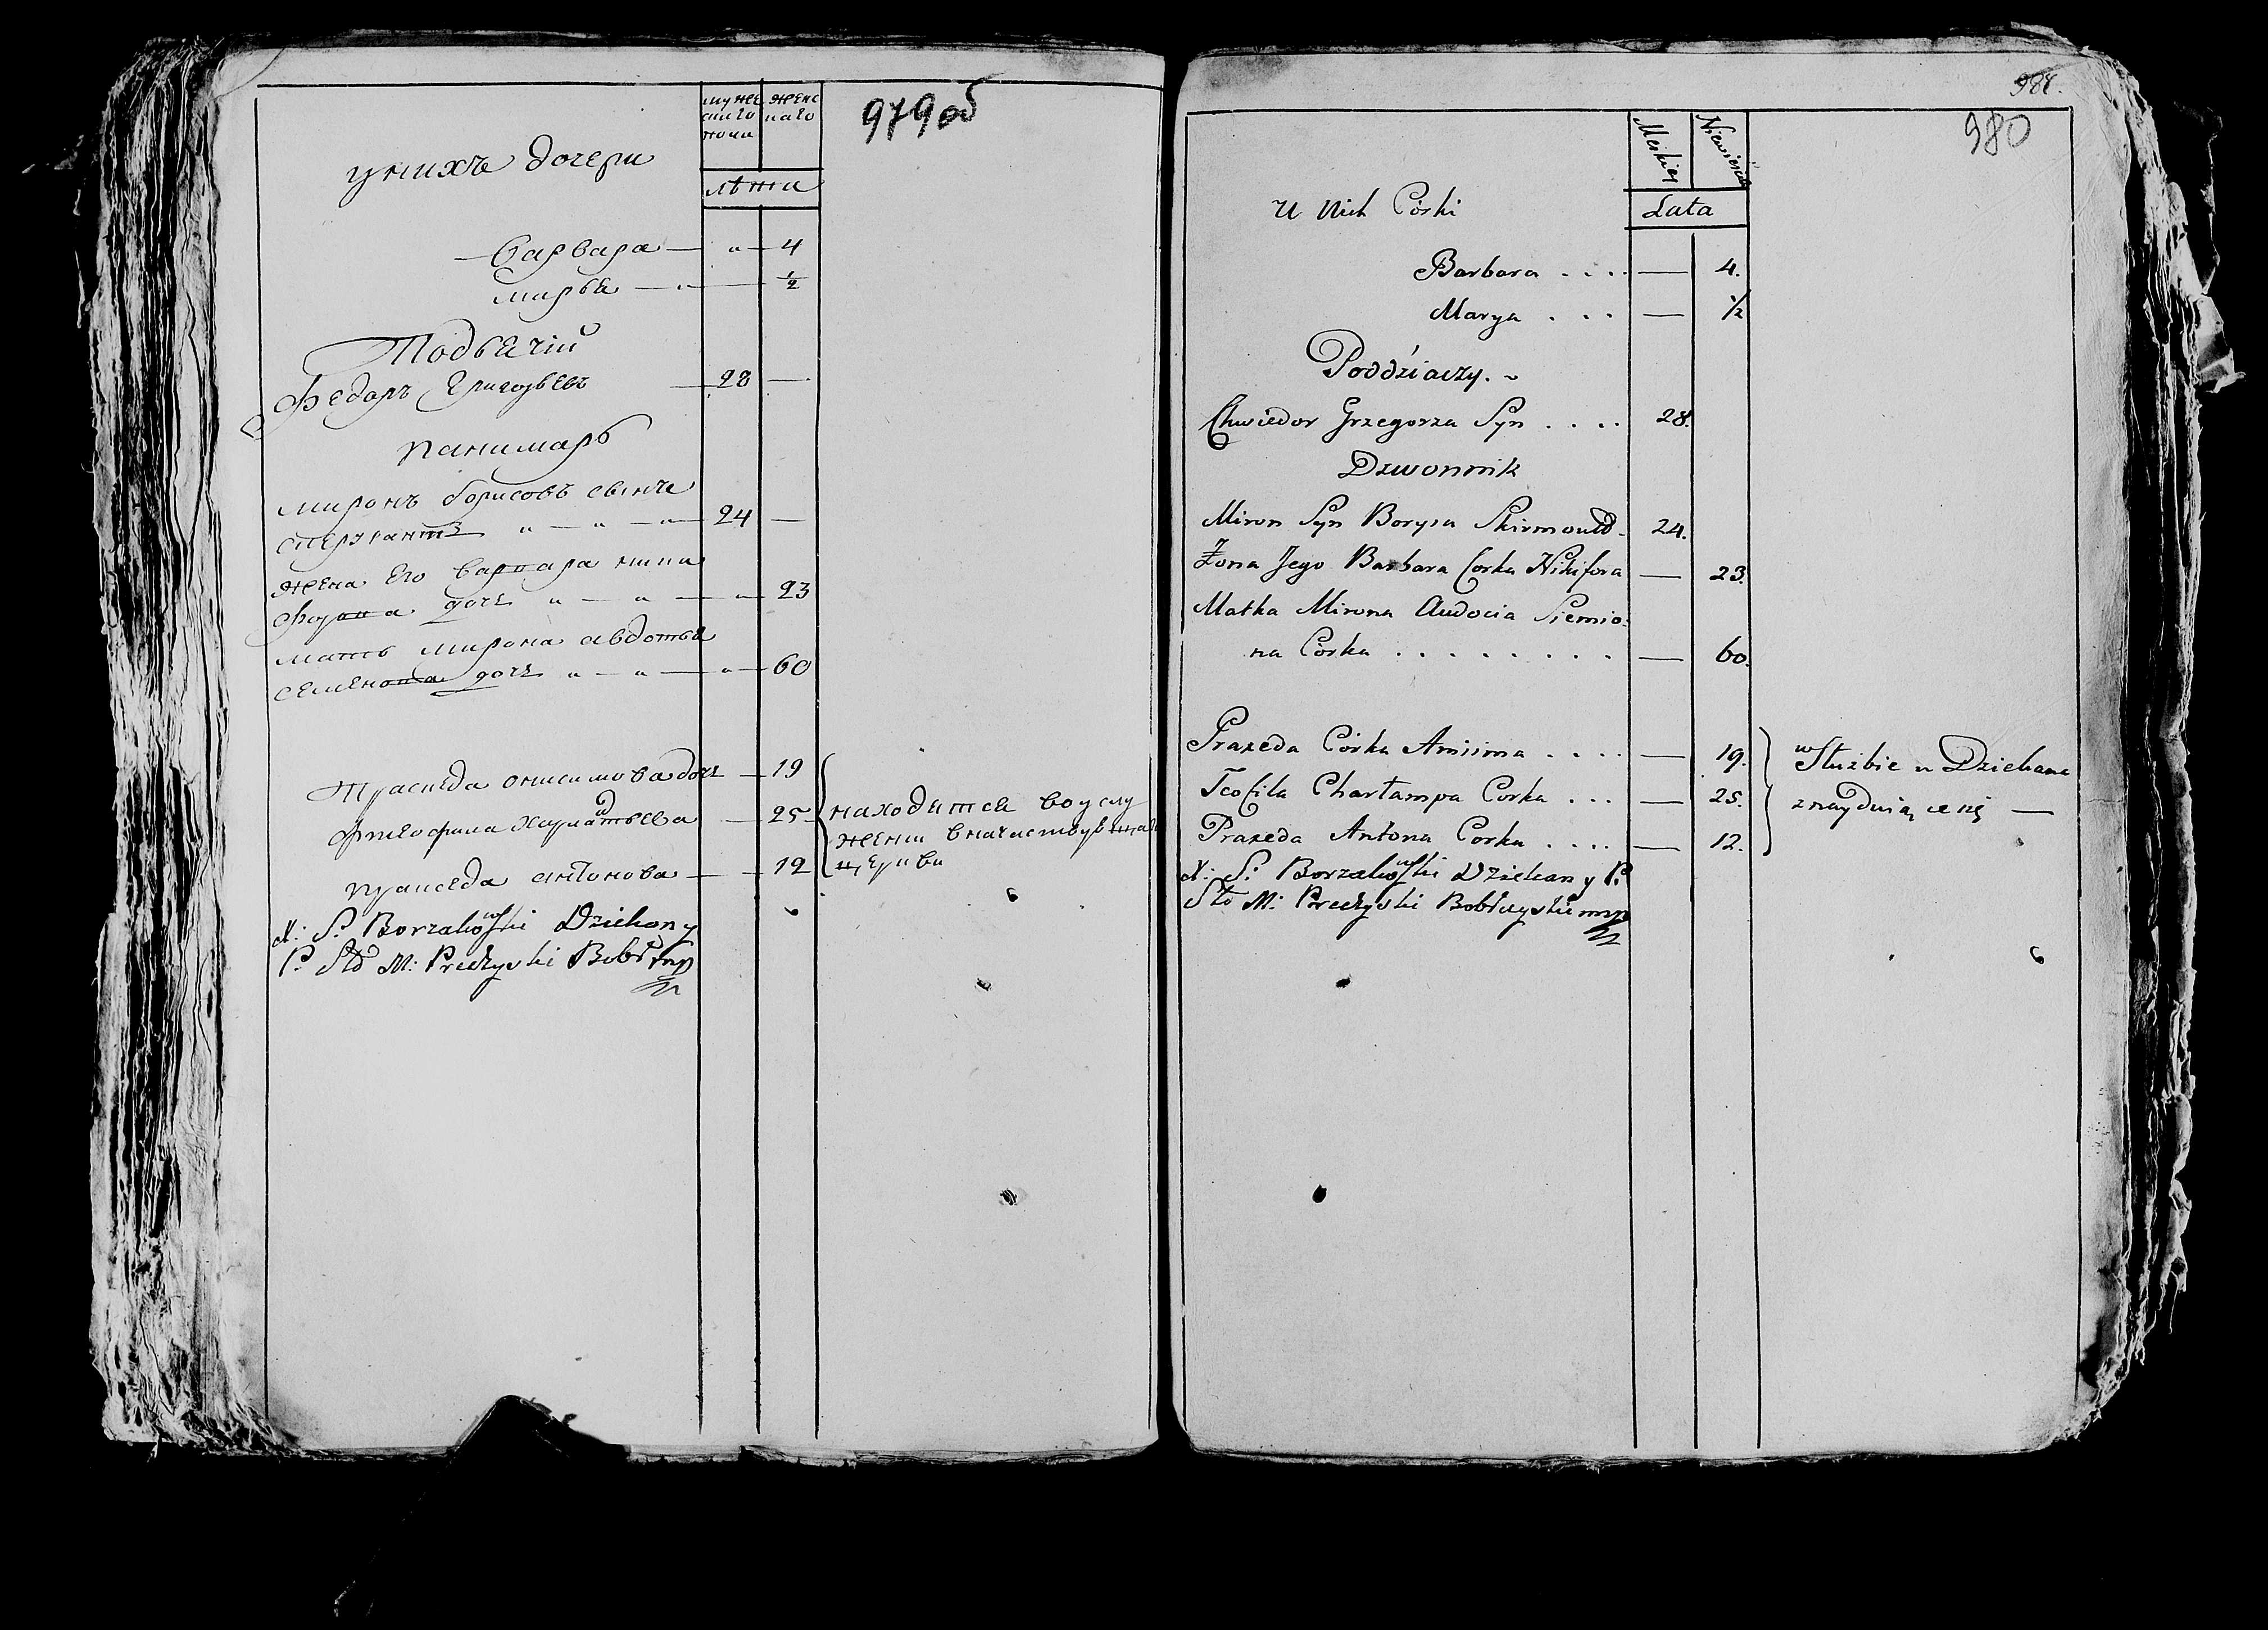 979 об
женс
каго
лѣта
у нихъ дочери
Варвара — " — 4
Марья — " — 1/2
Подьячій
Федоръ Григорьевъ — 28 —
панамарь
Миронъ Борисовъ
" — " — " — 24 —
жена его Варвара ники
форова дочь " — " — " — 23
мать Мирона авдотья
семенова дочь " — " — " — 60
Праскеда онисимова дочь — 19
Фтеофила — 25
Пракседа антонова — 12
находятся во услу
жении
церкви
X: S: Borzakowski Dziekan y
P. Sto M: Preczyski Bobr mp
981.
980
Męskiey
Niewieściey
Lata
U Nich Córki
Barbara . . . . — 4.
Marya . . . — 1/2
Poddziaczy. ~
Chwiedor Grzegorza Syn . . . . 28.
Dzwonnik
Miron Syn Borysa Skirmontd. 24.
Żona Jego Barbara Corka Nikifora — 23.
Matka Mirona Audocia Siemio:
na Córka . . . . . . . . . — 60.
Praxeda Córka Anisima . . . . — 19.
Teofila Charłampa Corka . . . — 25.
Praxeda Antona Corka . . . . — 12.
w Służbie u Dziekana
znayduią ce się —
X: S: Borzakowski Dziekan y P.
Sto M: Preczyski Bobruyski mp